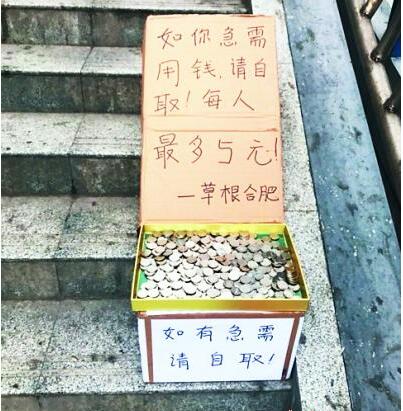 如你急需
用钱,请自
取!每人
最多5元!
一草根合肥
如有急需
请自取!